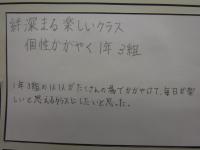 絆深まる楽しいクラス
個性かがやく1年3組
1年3組の1人1人がたくさんの場でかがやけて、毎日が楽し
いと思えるクラスにしたいと思った。